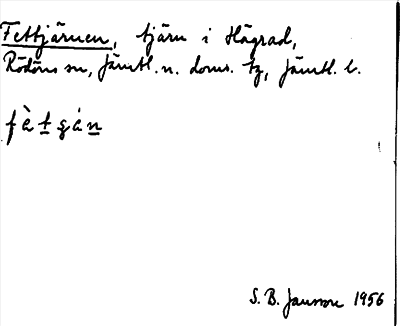 Fettjärnen, tjärn i Hägrad,
Rödöns sn, Jämtl. n. doms. tg, Jämtl. l.
fàtgán
S. B. Jansson 1956